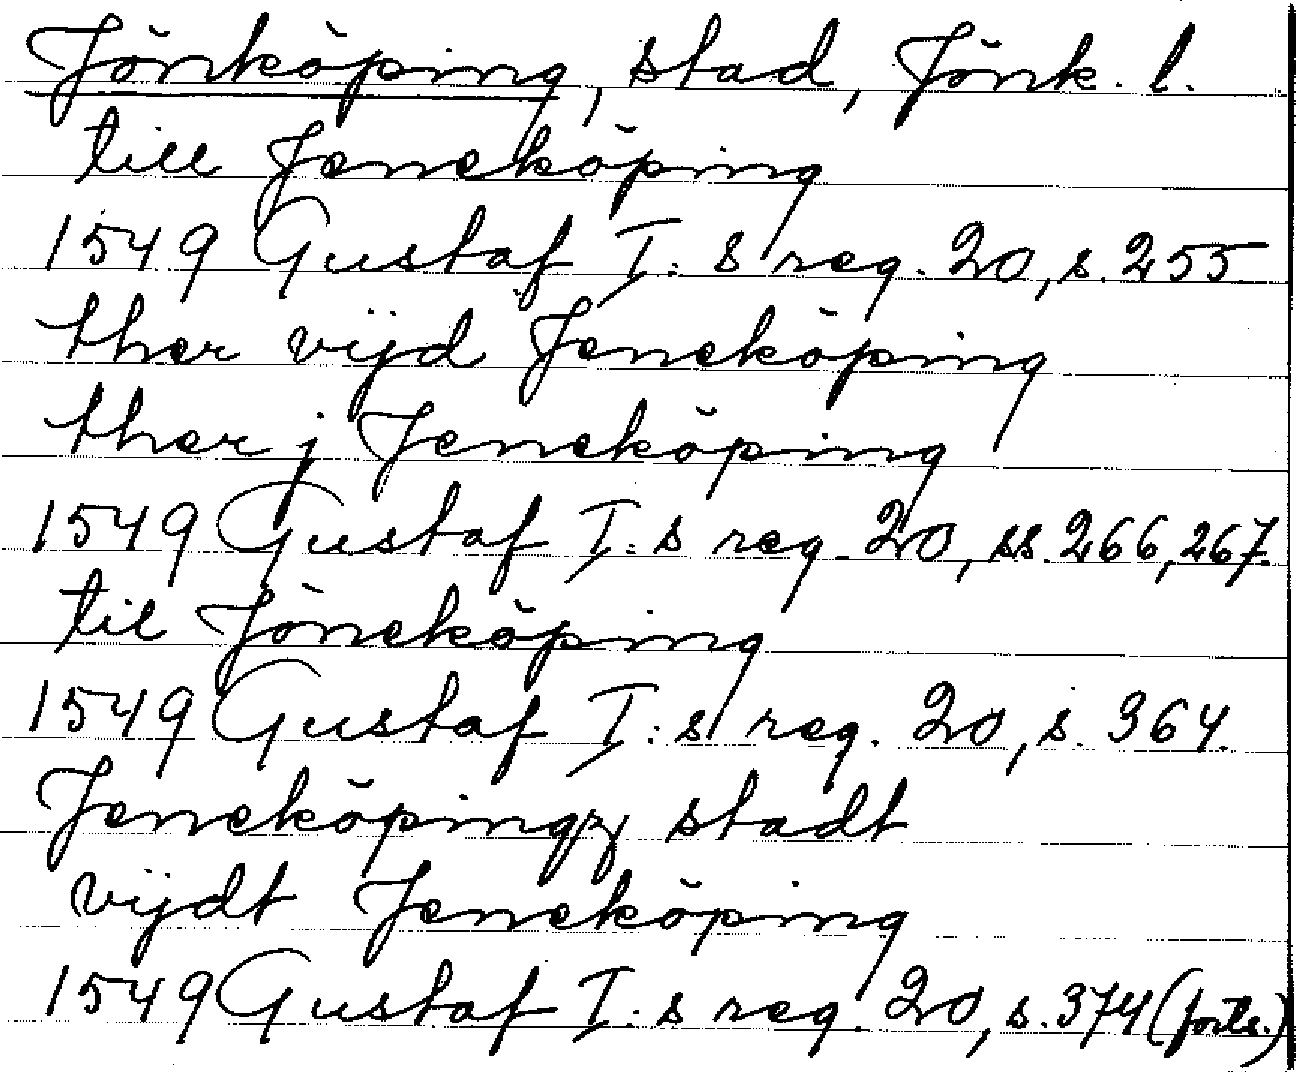 Jönköping, stad, Jönk. l.
till Jeneköping
1549 Gustaf I:s reg. 20, s. 255
ther vijd Jeneköping
ther j Jeneköping
1549 Gustaf I:s reg. 20, ss. 266, 267.
til Jöneköping
1549 Gustaf I:s reg. 20, s. 364.
Jeneköpingz stadt
vijdt Jeneköping
1549 Gustaf I:s reg. 20, s. 374 (forts.)